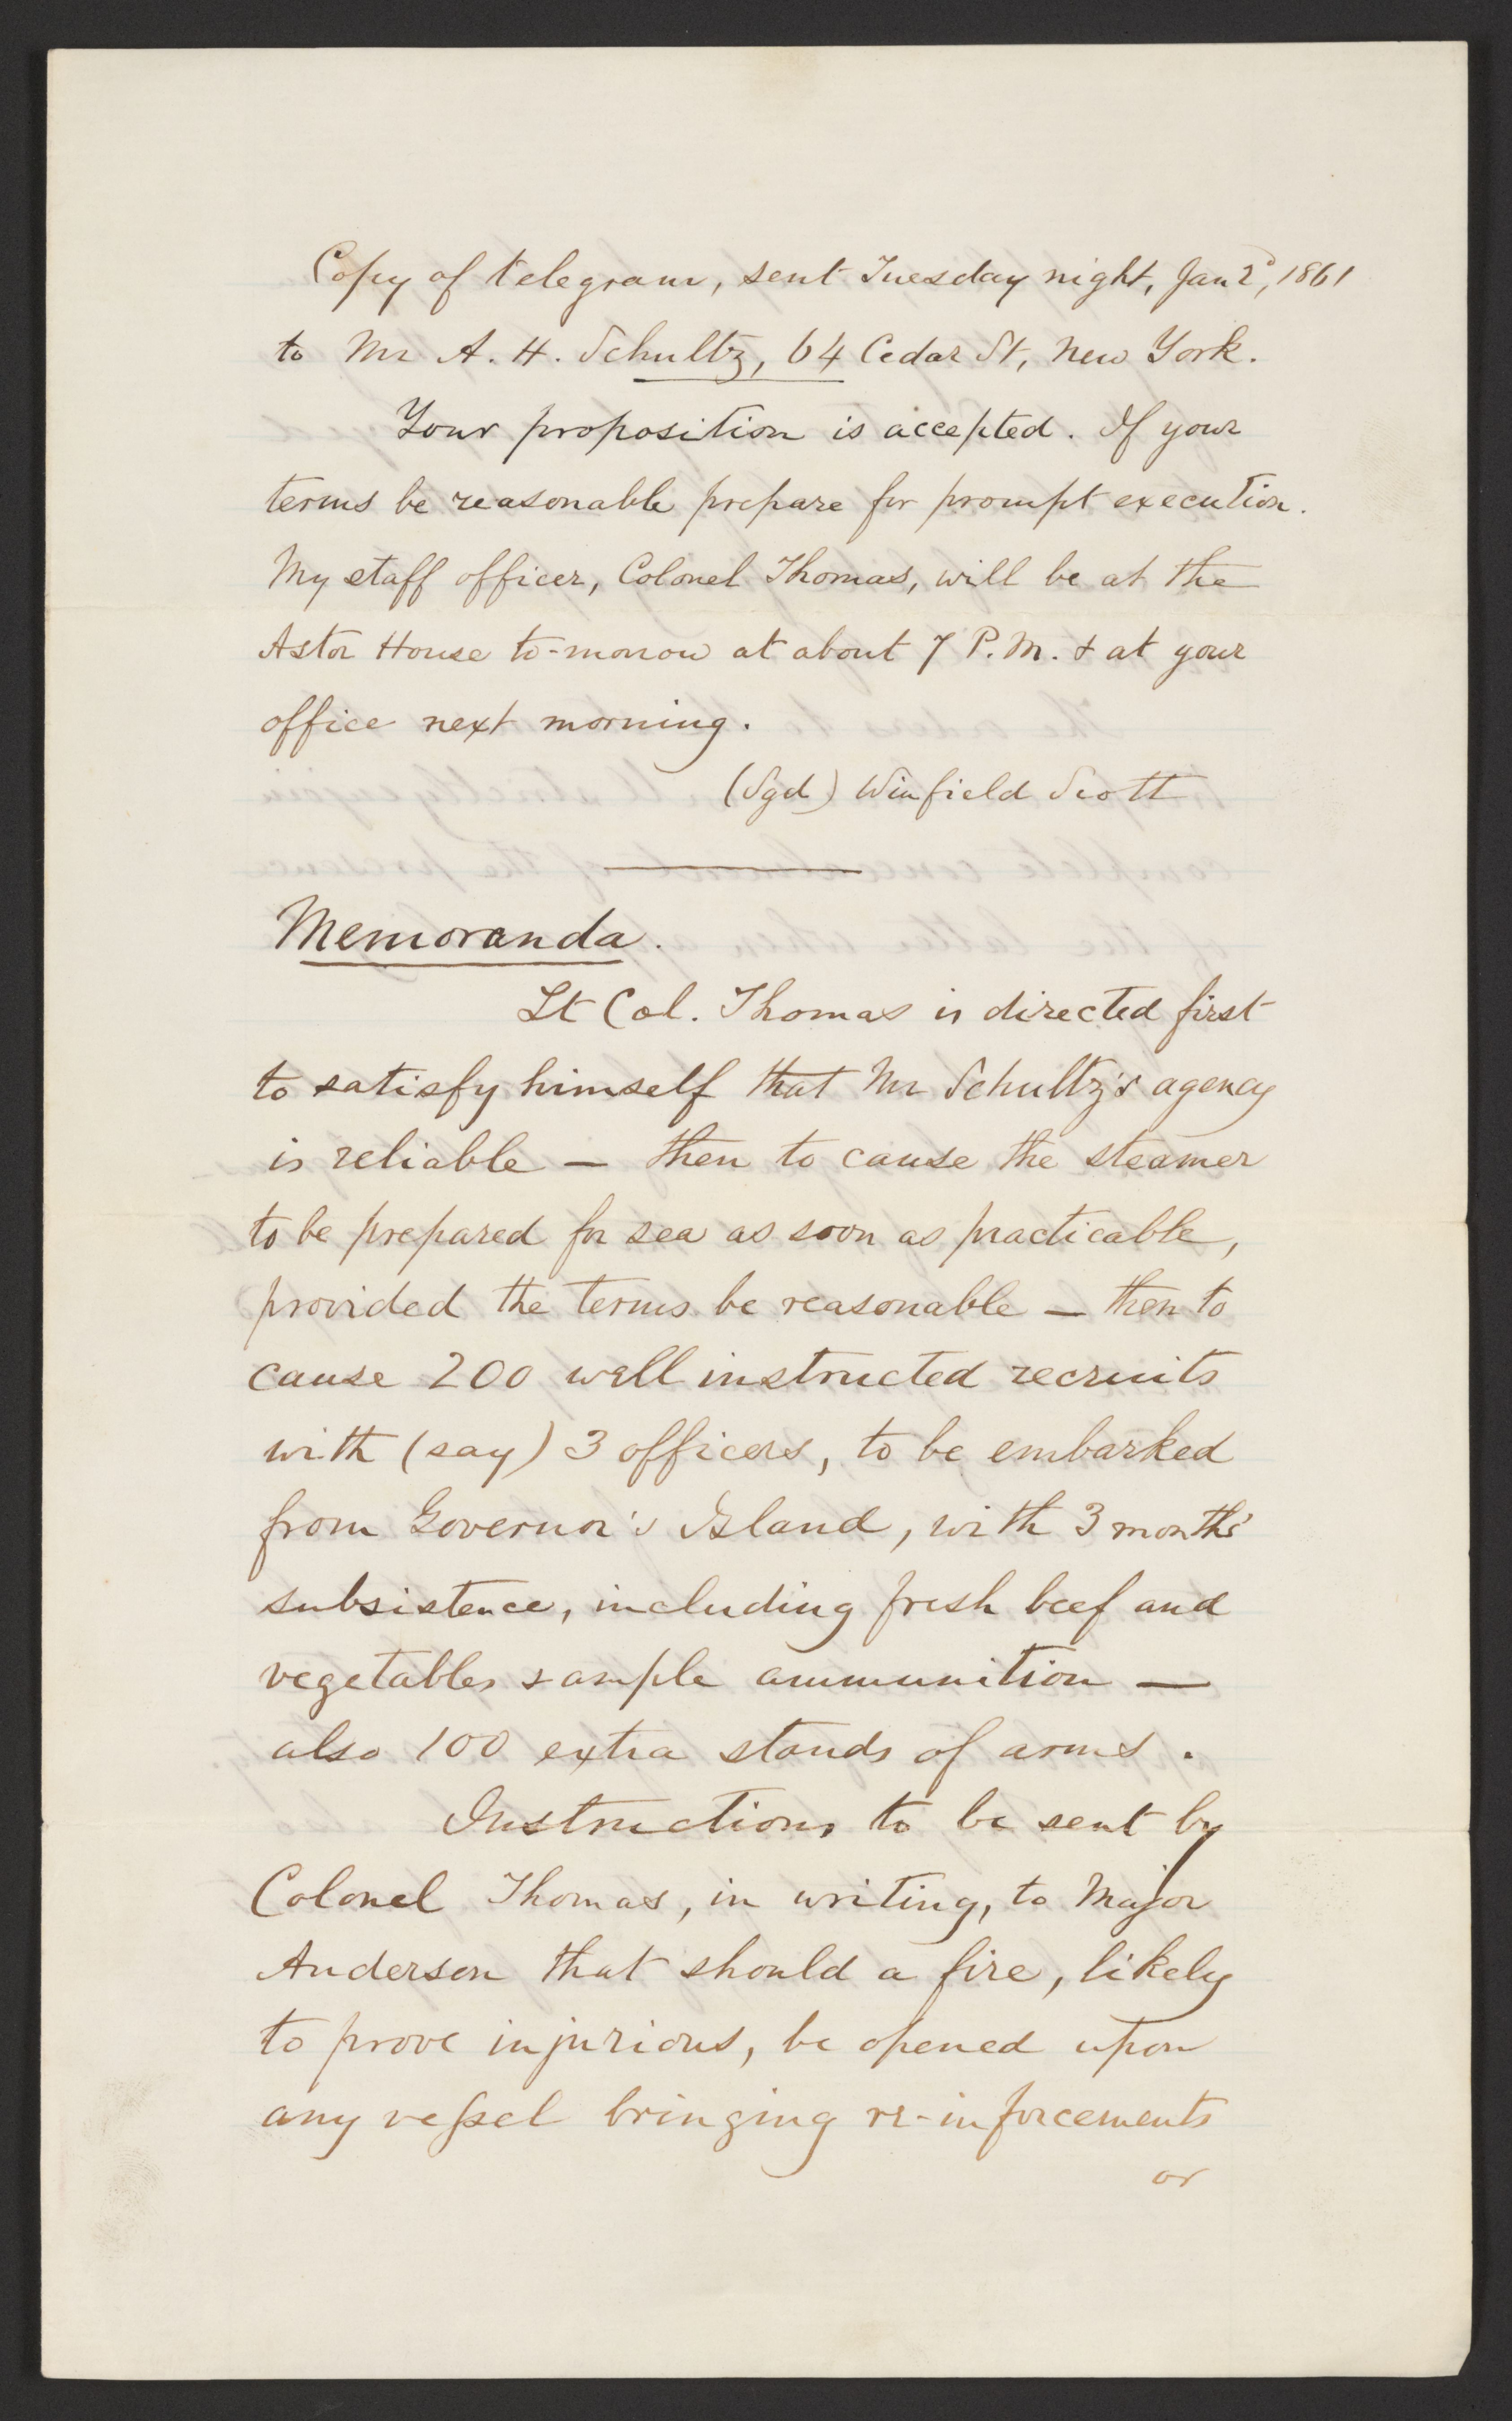 Copy of telegram, sent Tuesday night, Jan 2d, 1861
to Mr A. H. Schultz, 64 Cedar St, New York.
Your proposition is accepted. If your
terms be reasonable prepare for prompt execution.
My staff officer, Colonel Thomas, will be at the
Astor House to-morrow at about 7 P.M. & at your
office next morning.
(Sgd) Winfield Scott
Memoranda.
Lt Col. Thomas is directed first
to satisfy himself that Mr Schultz's agency
is reliable — then to cause the steamer
to be prepared for sea as soon as practicable,
provided the terms be reasonable — then to
cause 200 well instructed recruits
with (say) 3 officers, to be embarked
from Governor's Island, with 3 months'
subsistence, including fresh beef and
vegetables & ample ammunition —
also 100 extra stands of arms.
Instructions to be sent by
Colonel Thomas, in writing, to Major
Anderson that should a fire, likely
to prove injurious, be opened upon
any vessel bringing re-inforcements
or